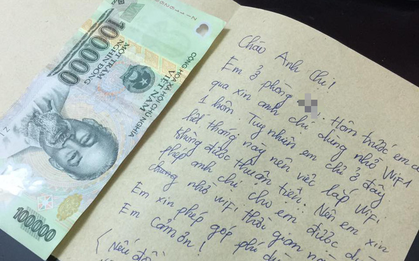 100000
MỘT TRĂM
NGHÌN ĐỒNG
CỘNG HÒA XÃ HỘI CHỦ NGHĨA
VIỆT NAM
100000
Chào Anh Chị!
Em ở phòng . Hôm trước em
qua xin anh chị dùng nhờ Wifi
1 hôm. Tuy nhiên em chỉ ở đây
hết tháng này nên việc lắp Wifi
không được thuận tiện. Nên em xin
phép anh chị cho em được
dùng nhờ wifi thời gian
Em xin phép góp phí
Em Cảm ơn!
(Nếu